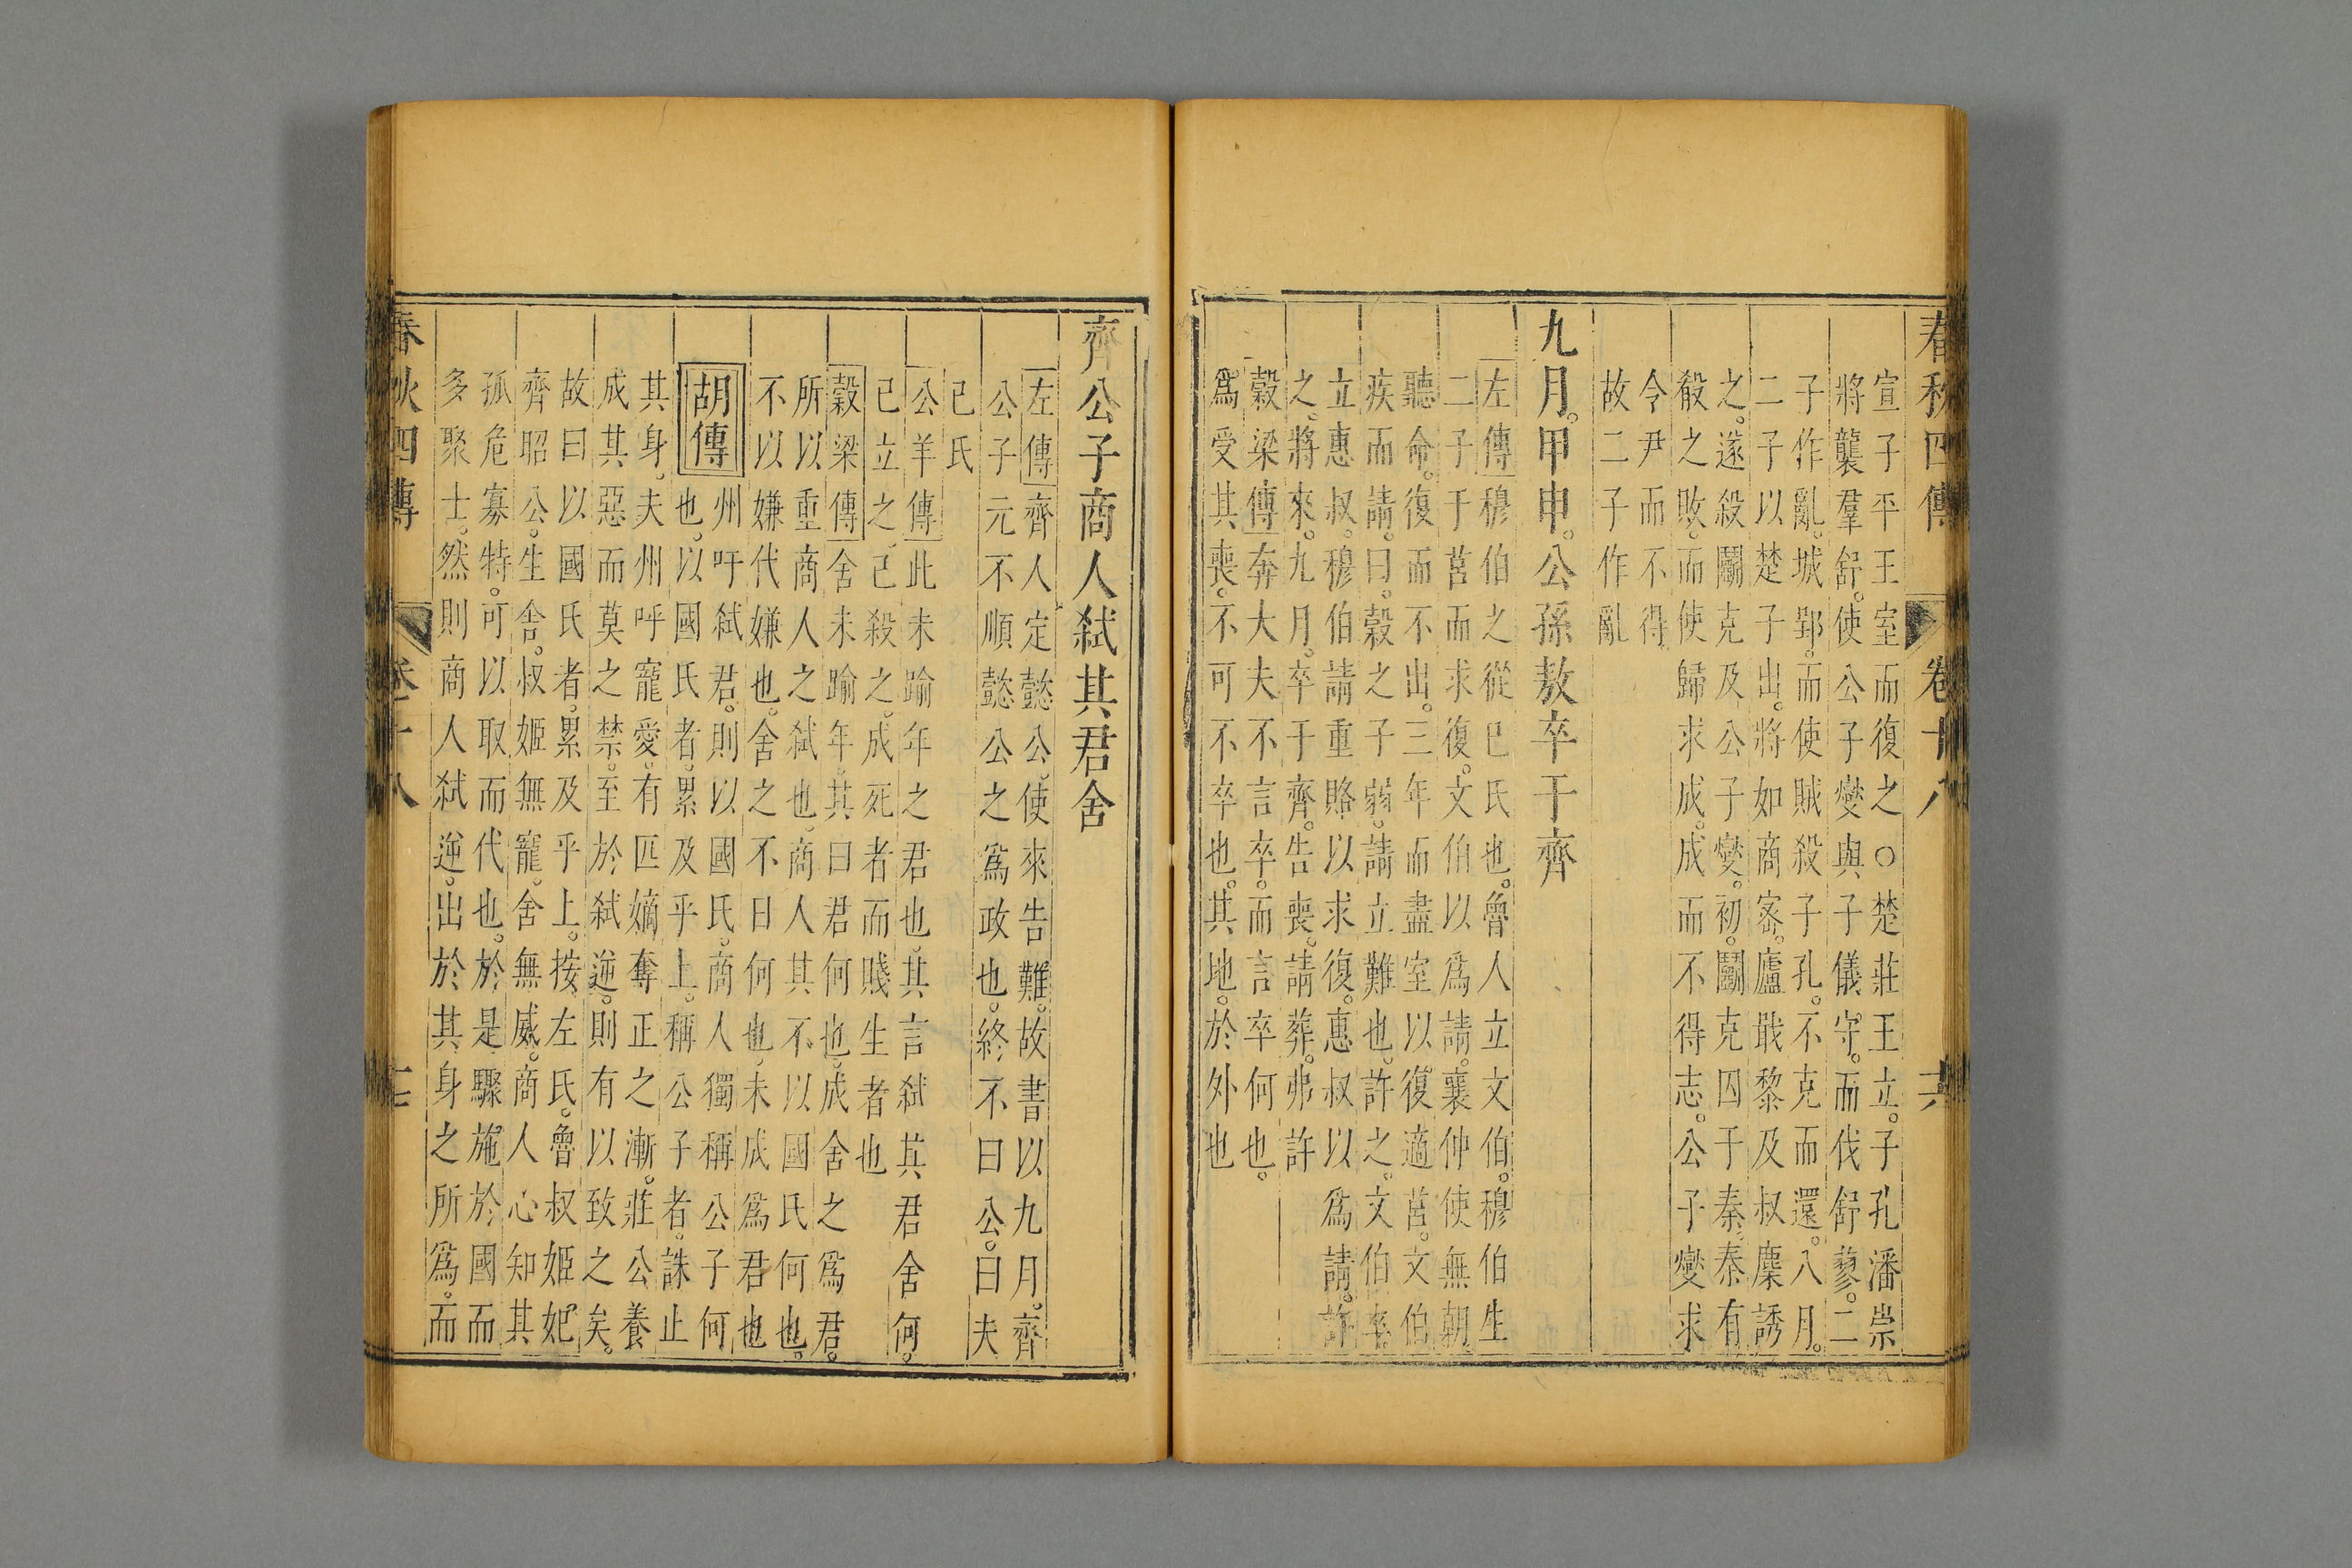 春秋四傳 卷十八
宣子平王室而復之○楚莊王立。子孔潘崇
將襲羣舒。使公子燮與子儀守。而伐舒蓼。二
子作亂。城郢。而使賊殺子孔。不克而還。八月。
二子以楚子出。將如商密。廬戢黎及叔麇誘
之。遂殺鬬克及公子燮。初。鬬克囚于秦。秦有
殽之敗。而使歸求成。成而不得志。公子燮求
令尹而不得。
故二子作亂
九月。甲申。公孫敖卒于齊
左傳穆伯之從巳氏也。魯人立文伯。穆伯生
二子于莒而求復。文伯以爲請。襄仲使無朝
聽命。復而不出。三年而盡室以復適莒。文伯
疾而請。曰。穀之子弱。請立難也。許之。文伯卒。
立惠叔。穆伯請重賂以求復。惠叔以爲請。許
之。將來。九月。卒于齊。告喪。請葬。弗許
穀梁傳奔大夫不言卒。而言卒何也。
爲受其喪。不可不卒也。其地。於外也
齊公子商人弑其君舍
左傳齊人定懿公。使來告難。故書以九月。齊
公子元不順懿公之爲政也。終不曰公。曰夫
己氏
公羊傳此未踰年之君也。其言弑其君舍何。
已立之。已殺之。成死者而賤生者也
穀梁傳舍未踰年。其曰君何也。成舍之爲君。
所以重商人之弑也。商人其不以國氏何也。
不以嫌代嫌也。舍之不日何也。未成爲君也
胡傳
州吁弑君。則以國氏。商人獨稱公子何
也。以國氏者。累及乎上。稱公子者。誅止
其身。夫州吁寵愛。有匹嫡奪正之漸。莊公養
成其惡而莫之禁。至於弑逆。則有以致之矣。
故曰以國氏者。累及乎上。按左氏。魯叔姬妃
齊昭公。生舍。叔姬無寵。舍無威。商人心知其
孤危寡特。可以取而代也。於是驟施於國而
多聚士。然則商人弑逆。出於其身之所爲。而
春秋四傳 卷十八